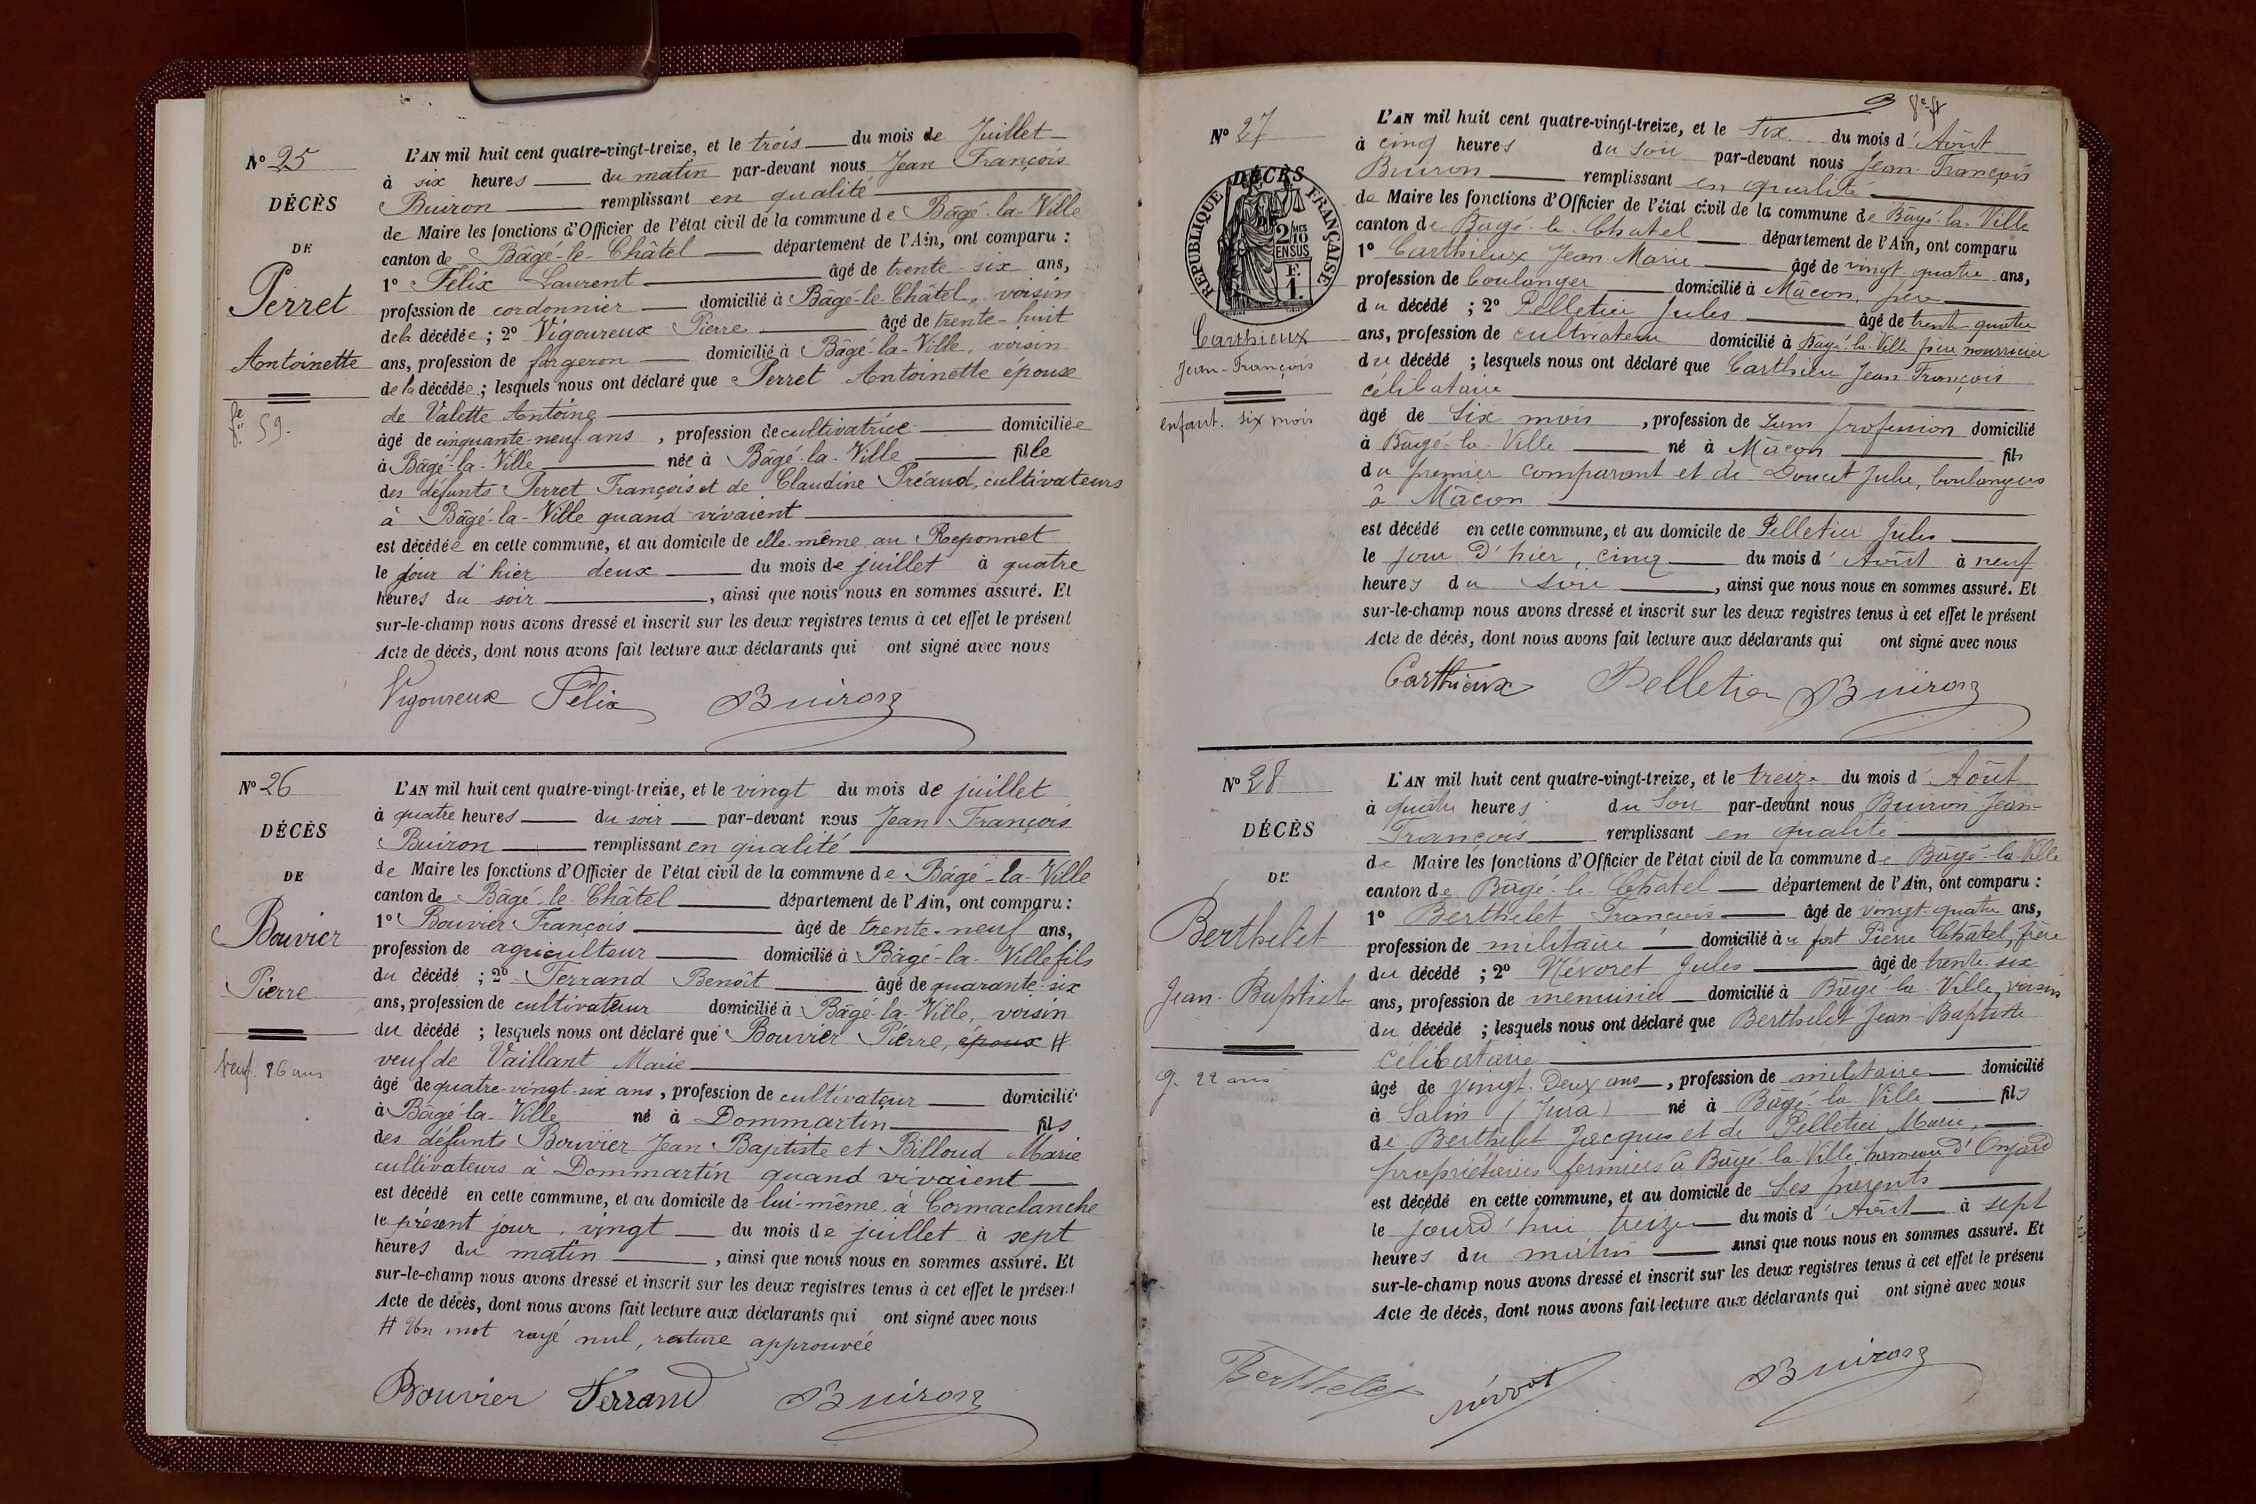 Nº 25
DÉCÈS
DE
Perret
Antoinette
59.
L'AN mil huit cent quatre-vingt-treize, et le trois du mois de Juillet
à six heures du matin par-devant nous Jean François
Buiron remplissant en qualité
de Maire les fonctions d'Officier de l'état civil de la commune de Bâgé-la-Ville
canton de Bâgé-le-Châtel département de l'Ain, ont comparu :
1º Félix Laurent âgé de trente-six ans,
profession de cordonnier domicilié à Bâgé-le-Châtel, voisin
de la décédée ; 2º Vigoureux Pierre âgé de trente-huit
ans, profession de forgeron domicilié à Bâgé-la-Ville, voisin
de la décédée ; lesquels nous ont déclaré que Perret Antoinette épouse
de Valette Antoine
âgé de cinquante-neuf ans, profession de cultivatrice domiciliée
à Bâgé-la-Ville née à Bâgé-la-Ville fille
des défunts Perret François et de Claudine Préaud, cultivateurs
à Bâgé-la-Ville quand vivaient
est décédée en cette commune, et au domicile de elle-même au Reponnet
le jour d'hier deux du mois de juillet à quatre
heures du soir, ainsi que nous nous en sommes assuré. Et
sur-le-champ nous avons dressé et inscrit sur les deux registres tenus à cet effet le présent
Acte de décès, dont nous avons fait lecture aux déclarants qui ont signé avec nous
Vigoureux Félix Buiron
Nº 26
DÉCÈS
DE
Bouvier
Pierre
Veuf. 86 ans
L'AN mil huit cent quatre-vingt-treize, et le vingt du mois de juillet
à quatre heures du soir par-devant nous Jean François
Buiron remplissant en qualité
de Maire les fonctions d'Officier de l'état civil de la commune de Bâgé-la-Ville
canton de Bâgé-le-Châtel département de l'Ain, ont comparu :
1º Bouvier François âgé de trente-neuf ans,
profession de agriculteur domicilié à Bâgé-la-Ville fils
du décédé ; 2º Ferrand Benoît âgé de quarante-six
ans, profession de cultivateur domicilié à Bâgé-la-Ville, voisin
du décédé ; lesquels nous ont déclaré que Bouvier Pierre, époux #
veuf de Vaillant Marie
âgé de quatre-vingt-six ans, profession de cultivateur domicilié
à Bâgé-la-Ville né à Dommartin fils
des défunts Bouvier Jean Baptiste et Billoud Marie
cultivateurs à Dommartin quand vivaient
est décédé en cette commune, et au domicile de lui-même à Cormaclanche
le présent jour, vingt du mois de juillet à sept
heures du matin, ainsi que nous nous en sommes assuré. Et
sur-le-champ nous avons dressé et inscrit sur les deux registres tenus à cet effet le présent
Acte de décès, dont nous avons fait lecture aux déclarants qui ont signé avec nous
# Un mot rayé nul, rature approuvée
Bouvier Ferrand Buiron
Nº 27
DÉCÈS
RÉPUBLIQUE FRANÇAISE
2/10 EN SUS
F. 1.
Carthieux
Jean-François
enfant. six mois
L'AN mil huit cent quatre-vingt-treize, et le Six du mois d'Août
à cinq heures du soir par-devant nous Jean-François
Buiron remplissant en qualité
de Maire les fonctions d'Officier de l'état civil de la commune de Bâgé-la-Ville
canton de Bâgé-le-Chatel département de l'Ain, ont comparu
1º Carthieux Jean-Marie âgé de vingt-quatre ans,
profession de boulanger domicilié à Mâcon, père
du décédé ; 2º Pelletier Jules âgé de trente quatre
ans, profession de cultivateur domicilié à Bâgé-la-Ville père nourricier
du décédé ; lesquels nous ont déclaré que Carthieu Jean François
célibataire
âgé de Six mois, profession de Sans profession domicilié
à Bâgé-la-Ville né à Mâcon fils
du premier comparant et de Doucet Julie, boulangers
à Mâcon
est décédé en cette commune, et au domicile de Pelletier Jules
le jour d'hier, cinq du mois d'Août à neuf
heures du soir, ainsi que nous nous en sommes assuré. Et
sur-le-champ nous avons dressé et inscrit sur les deux registres tenus à cet effet le présent
Acte de décès, dont nous avons fait lecture aux déclarants qui ont signé avec nous
Carthieux Pelletier Buiron
Nº 28
DÉCÈS
DE
Berthelet
Jean-Baptiste
g. 22 ans
L'AN mil huit cent quatre-vingt-treize, et le treize du mois d'Août
à quatre heures du Soir par-devant nous Buiron Jean-
François remplissant en qualité
de Maire les fonctions d'Officier de l'état civil de la commune de Bâgé-la-Ville
canton de Bâgé-le-Chatel département de l'Ain, ont comparu :
1º Berthelet François âgé de vingt-quatre ans,
profession de militaire domicilié à u fort Pierre Chatel, frère
du décédé ; 2º Névoret Jules âgé de trente-six
ans, profession de menuisier domicilié à Bâgé-la-Ville, voisin
du décédé ; lesquels nous ont déclaré que Berthelet Jean-Baptiste
célibataire
âgé de vingt-Deux ans, profession de militaire domicilié
à Salin (Jura) né à Bâgé-la-Ville fils
de Berthelet Jacques et de Pelletier Marie,
propriétaires fermiers à Bâgé-la-Ville, hameau d'Onjard
est décédé en cette commune, et au domicile de Ses parents
le jourd'hui treize du mois d'Août à sept
heures du matin ainsi que nous nous en sommes assuré. Et
sur-le-champ nous avons dressé et inscrit sur les deux registres tenus à cet effet le présent
Acte de décès, dont nous avons fait lecture aux déclarants qui ont signé avec nous
Berthelet Buiron